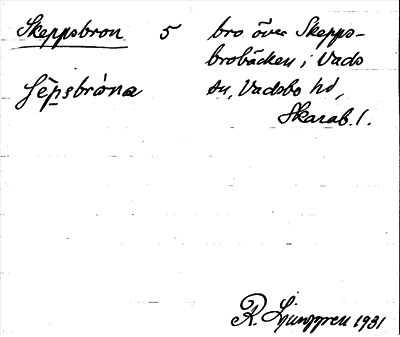 Skeppsbron 5 bro över Skepps-
brobäcken i Vads
sn, Vadsbo hd,
Skarab. l.
R. Ljunggren 1931